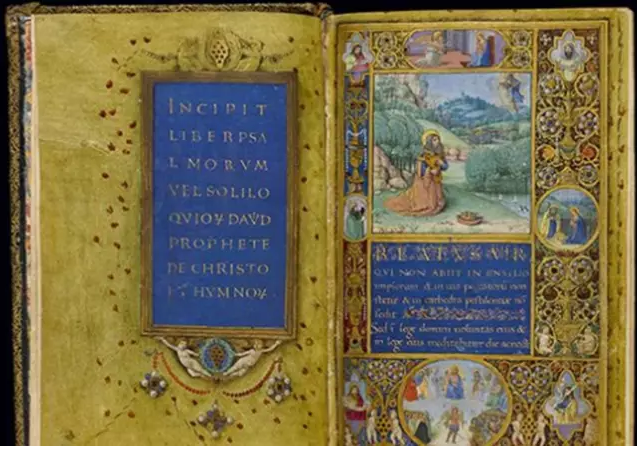 INCIPIT
LIBER PSA
LMORVM
VEL SOLILO
QVIOꝝ DAVID
PROPHETE
DE CHRISTO
ET HYMNOꝝ
BEATVS VIR
QVI NON ABIIT IN
impiorum & in uia peccatorũ non
stetit & in cathedra pestilentiae nõ
sedit
Sed ĩ lege domini uoluntas eius &
in lege eius meditabitur die ac nocte